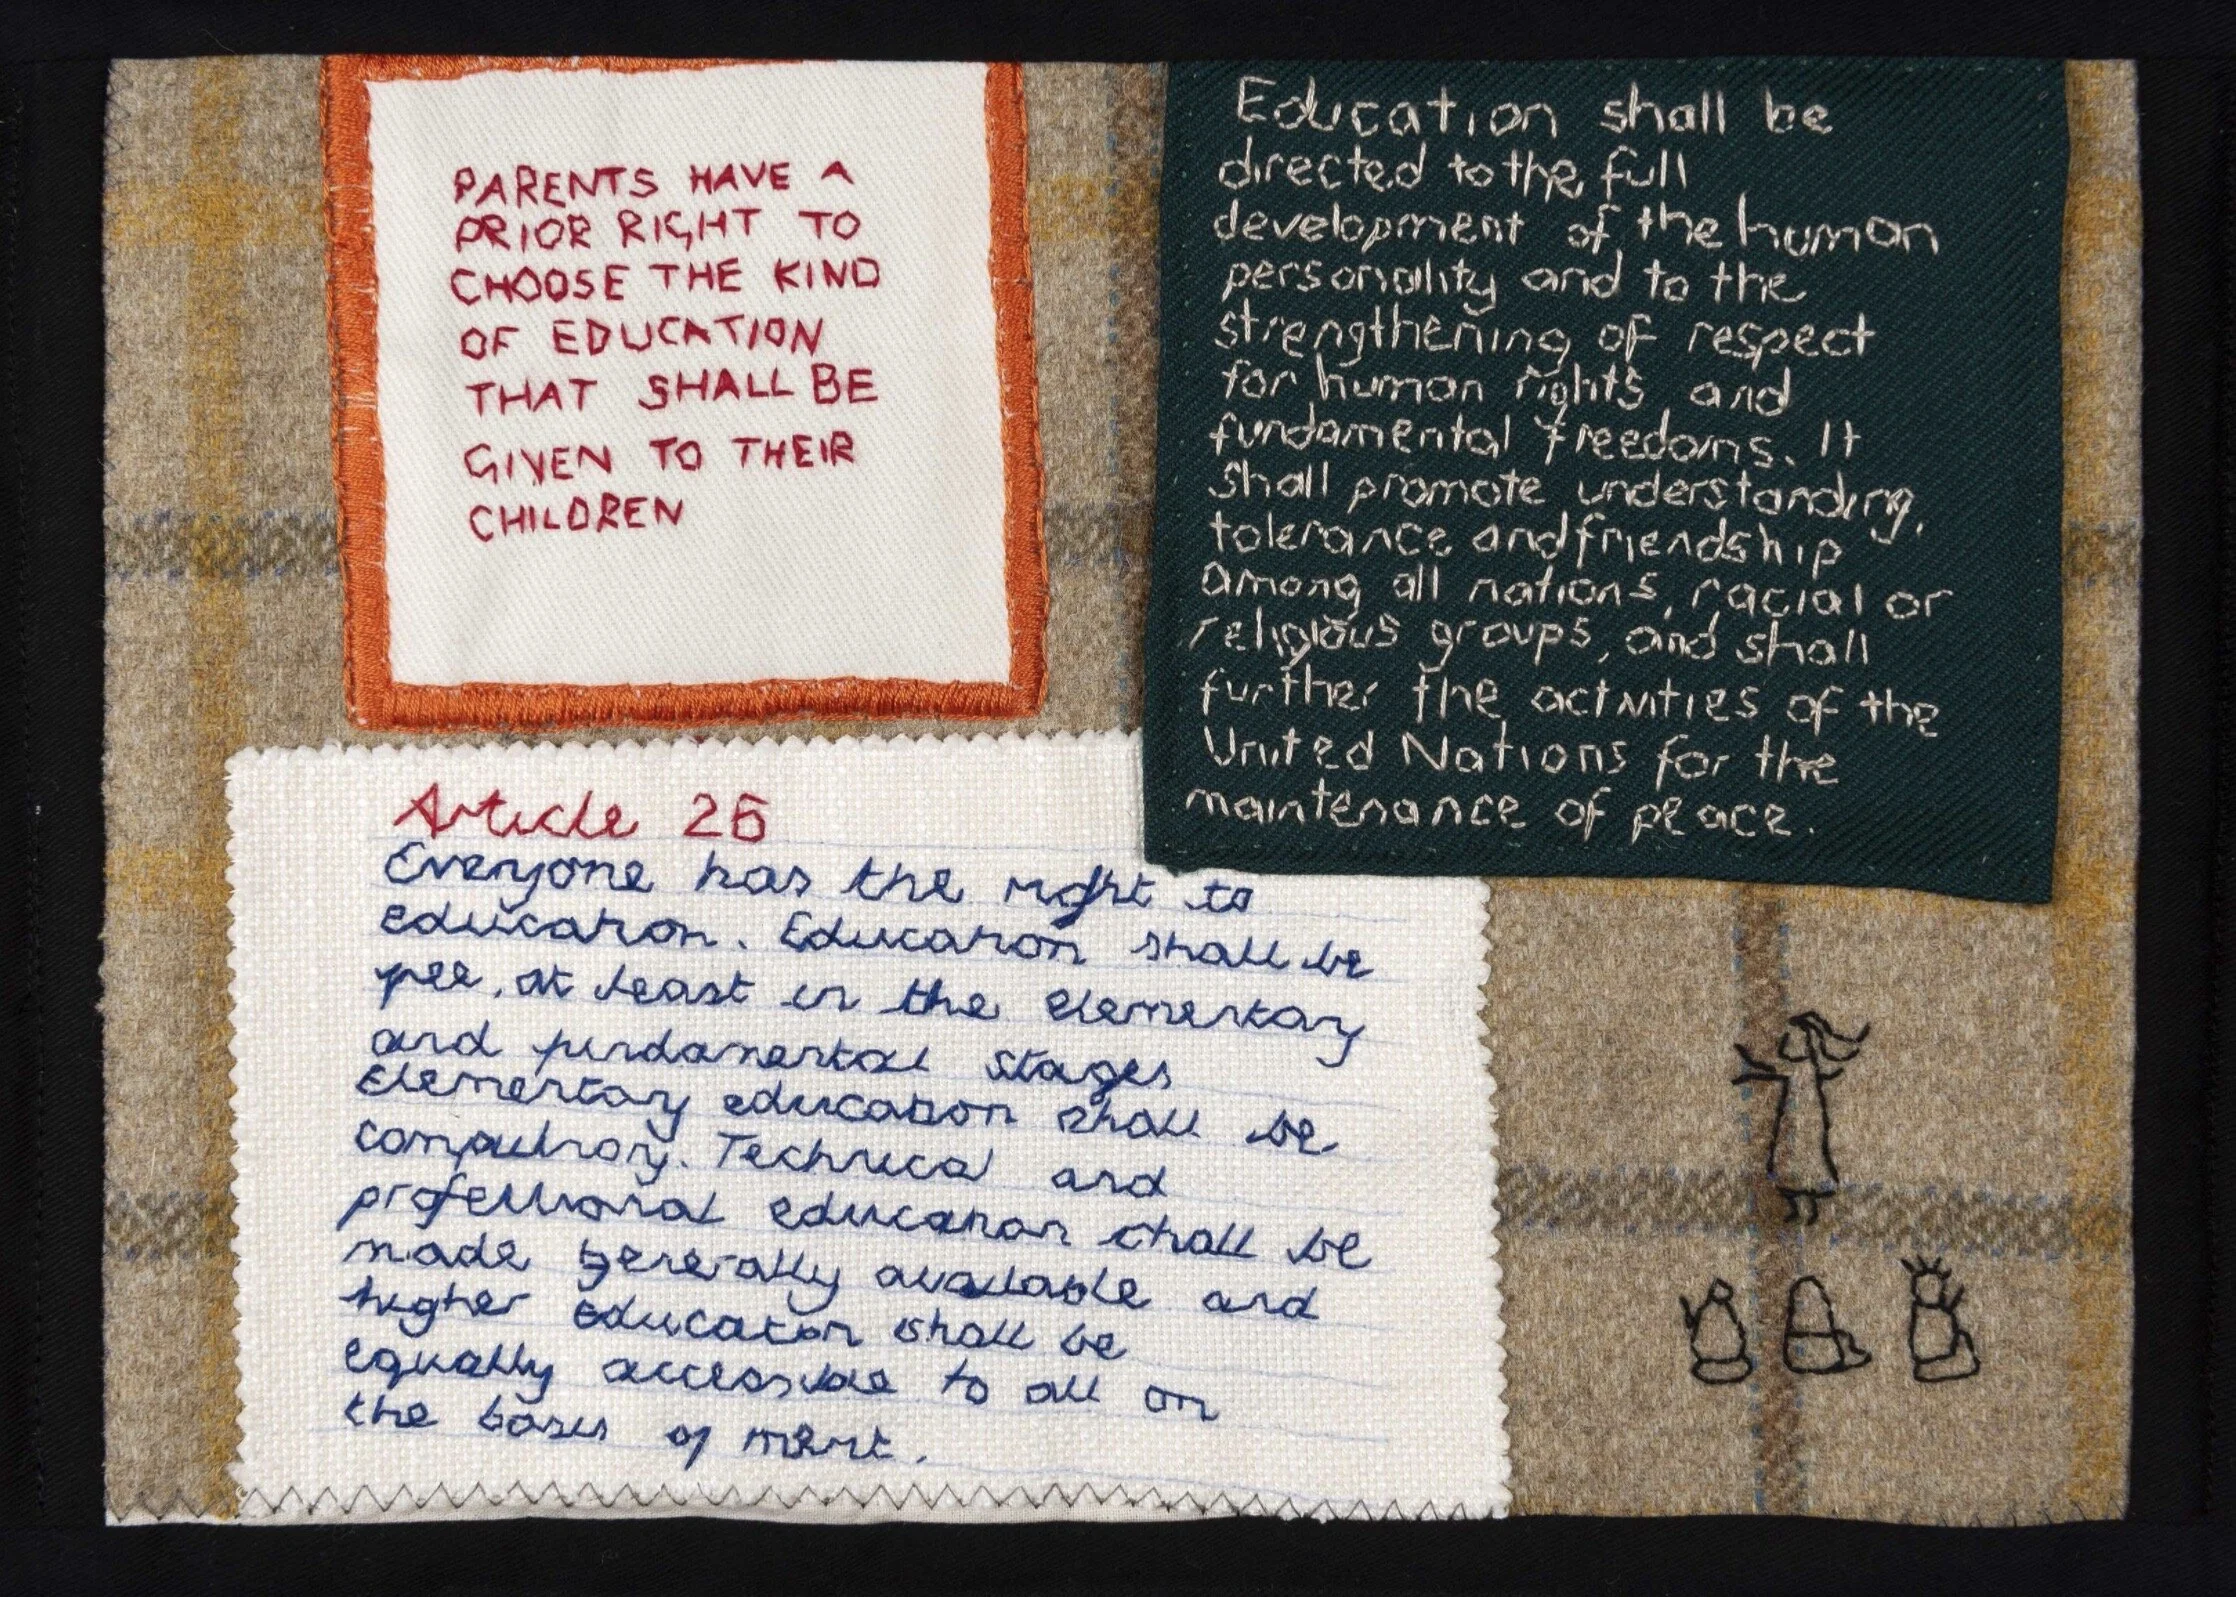 PARENTS HAVE A
PRIOR RIGHT TO
CHOOSE THE KIND
OF EDUCATION
THAT SHALL BE
GIVEN TO THEIR
CHILDREN
Education shall be
directed to the full
development of the human
personality and to the
strengthening of respect
for human rights and
fundamental freedoms. It
shall promote understanding,
tolerance and friendship
among all nations, racial or
religious groups, and shall
further the activities of the
United Nations for the
maintenance of peace.
Article 26
Everyone has the right to
education. Education shall be
free, at least in the elementary
and fundamental stages
Elementary education shall be
compulsory. Technical and
professional education shall be
made generally available and
higher education shall be
equally accessible to all on
the basis of merit.